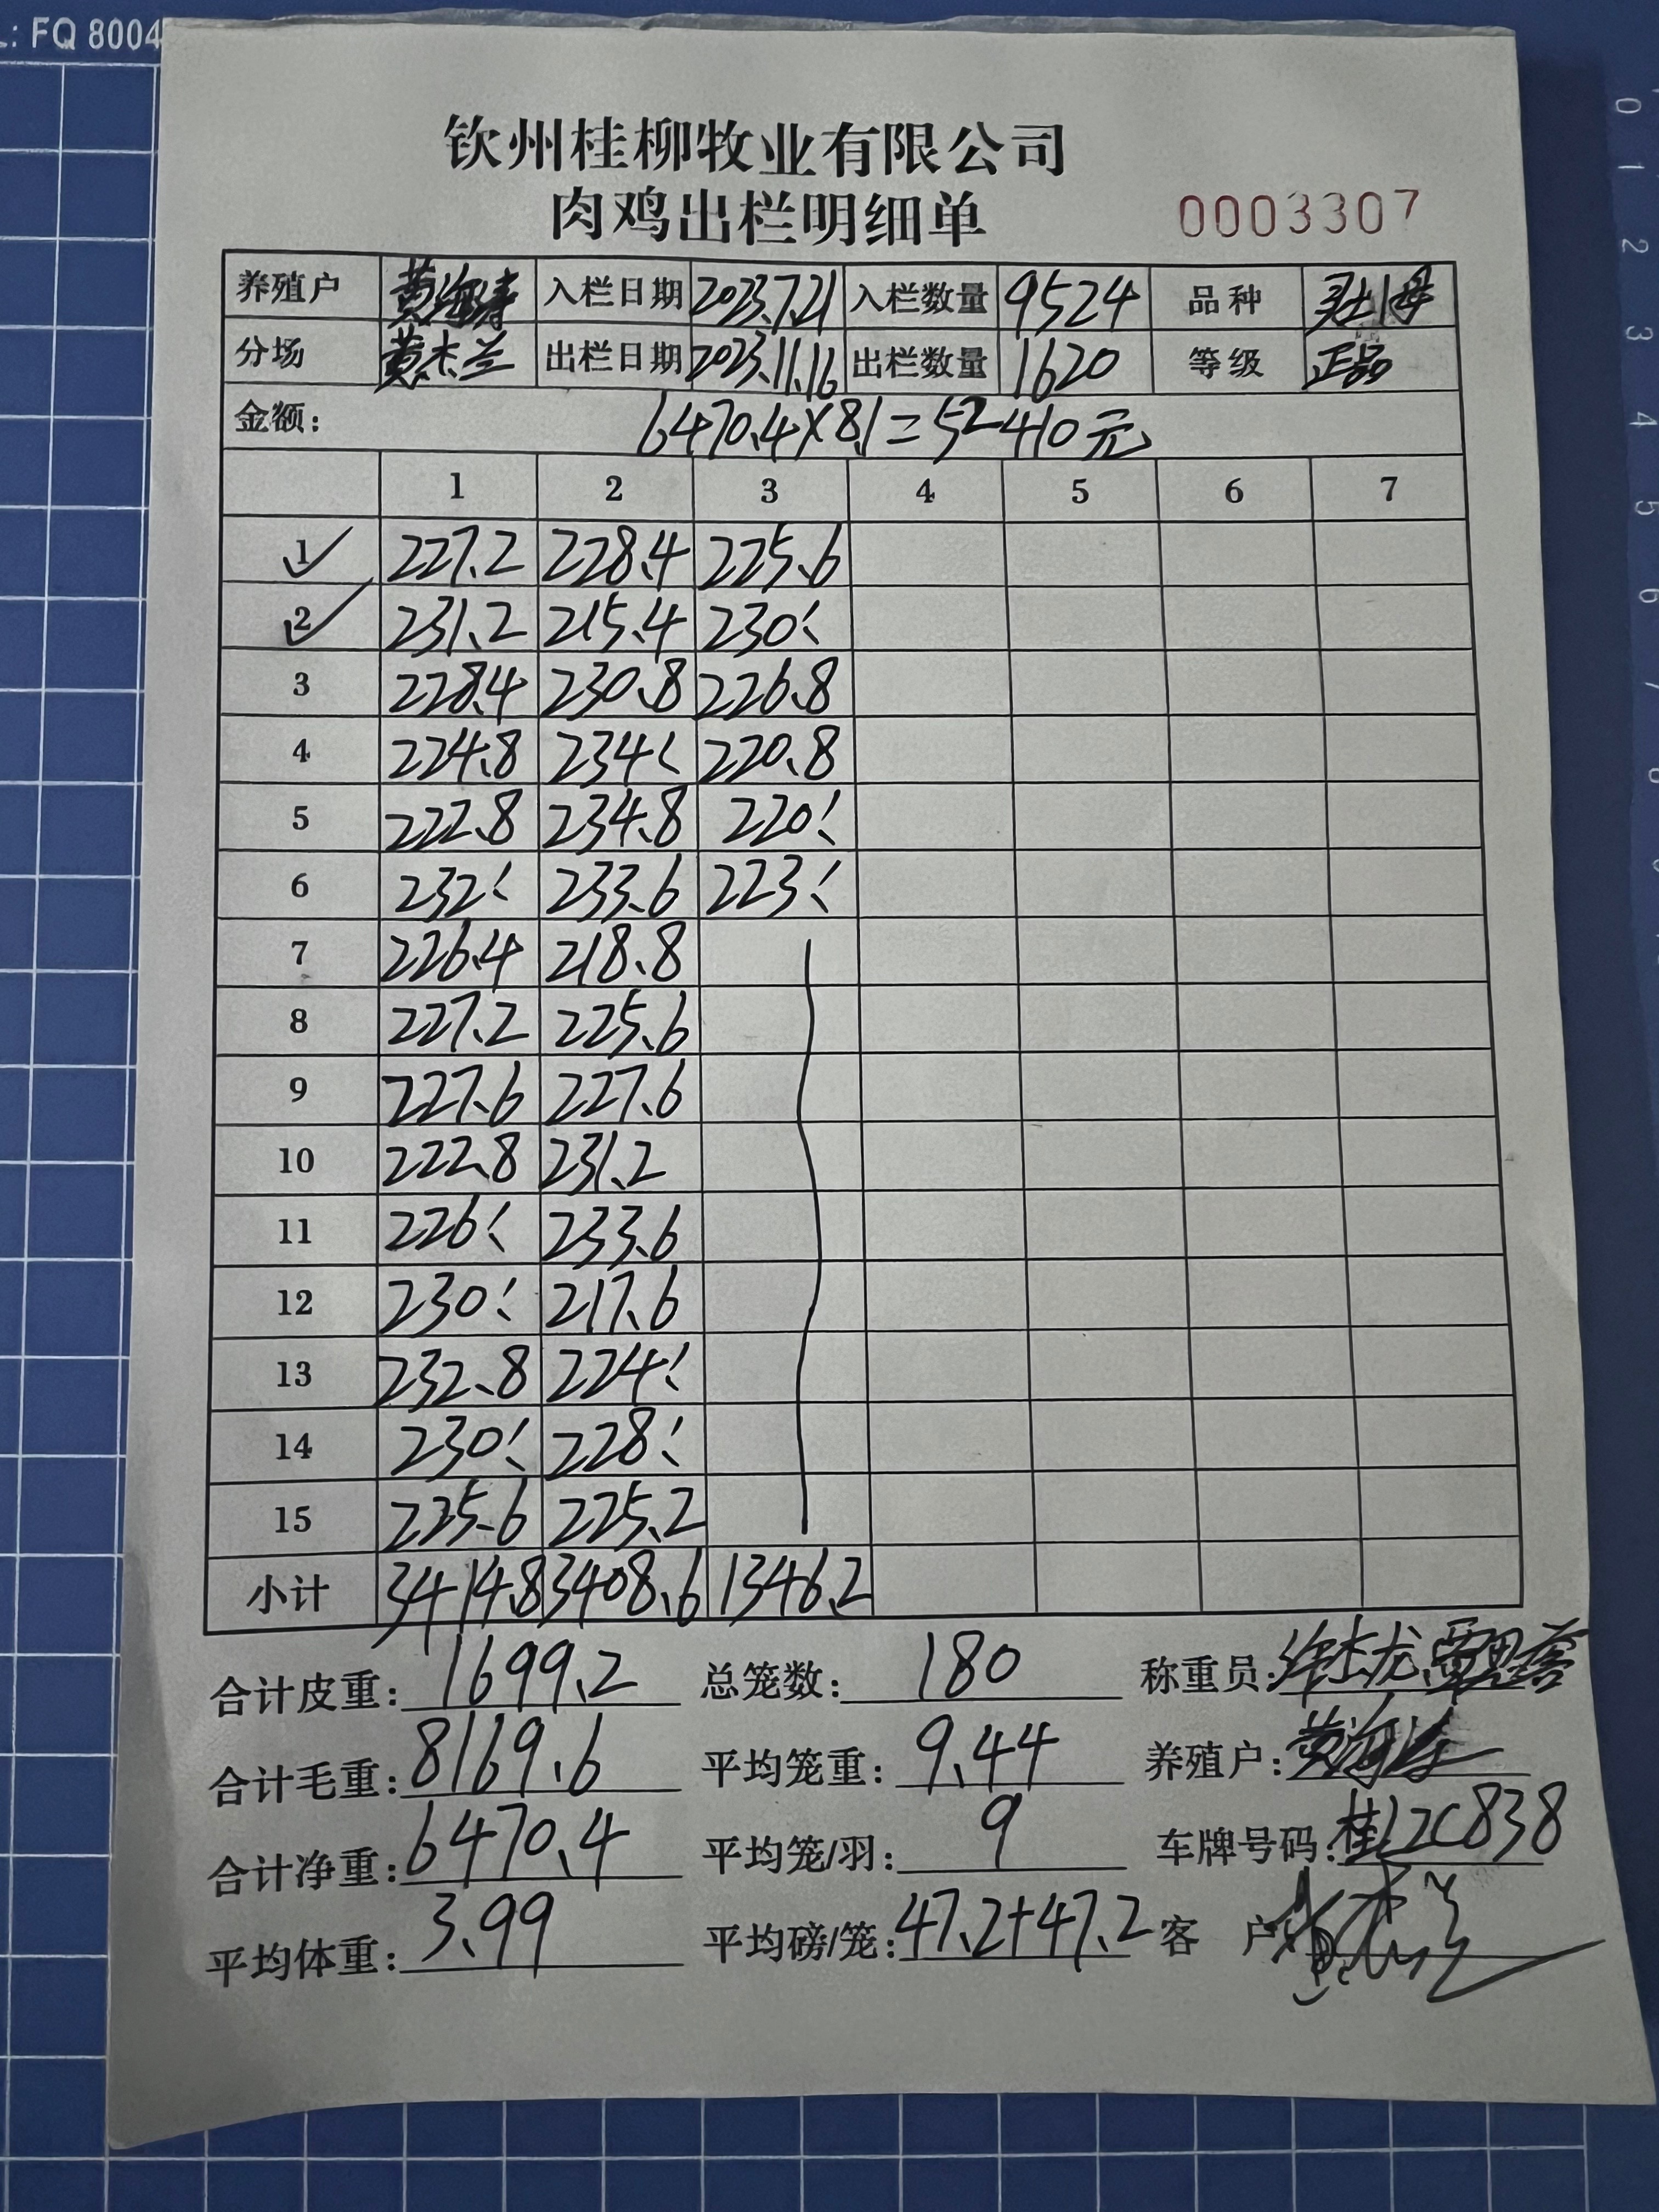 FQ 8004
钦州桂柳牧业有限公司
肉鸡出栏明细单 0003307
养殖户 入栏日期 2023.7.21 入栏数量 9524 品种
分场 黄杰兰 出栏日期 2023.11.16 出栏数量 1620 等级 正品
金额: 6470.4×8.1=52410元
1 2 3 4 5 6 7
1 227.2 228.4 225.6
2 231.2 215.4 230
3 228.4 230.8 226.8
4 224.8 234 220.8
5 222.8 234.8 220
6 232 233.6 223
7 226.4 218.8
8 227.2 225.6
9 227.6 227.6
10 222.8 231.2
11 226 233.6
12 230 217.6
13 232.8 224
14 230 228
15 225.6 225.2
小计 3414.8 3408.6 1346.2
合计皮重: 1699.2 总笼数: 180 称重员:
合计毛重: 8169.6 平均笼重: 9.44 养殖户:
合计净重: 6470.4 平均笼/羽: 9 车牌号码: 桂L2C838
平均体重: 3.99 平均磅/笼: 47.2+47.2 客户
0
1
2
3
4
5
6
7
8